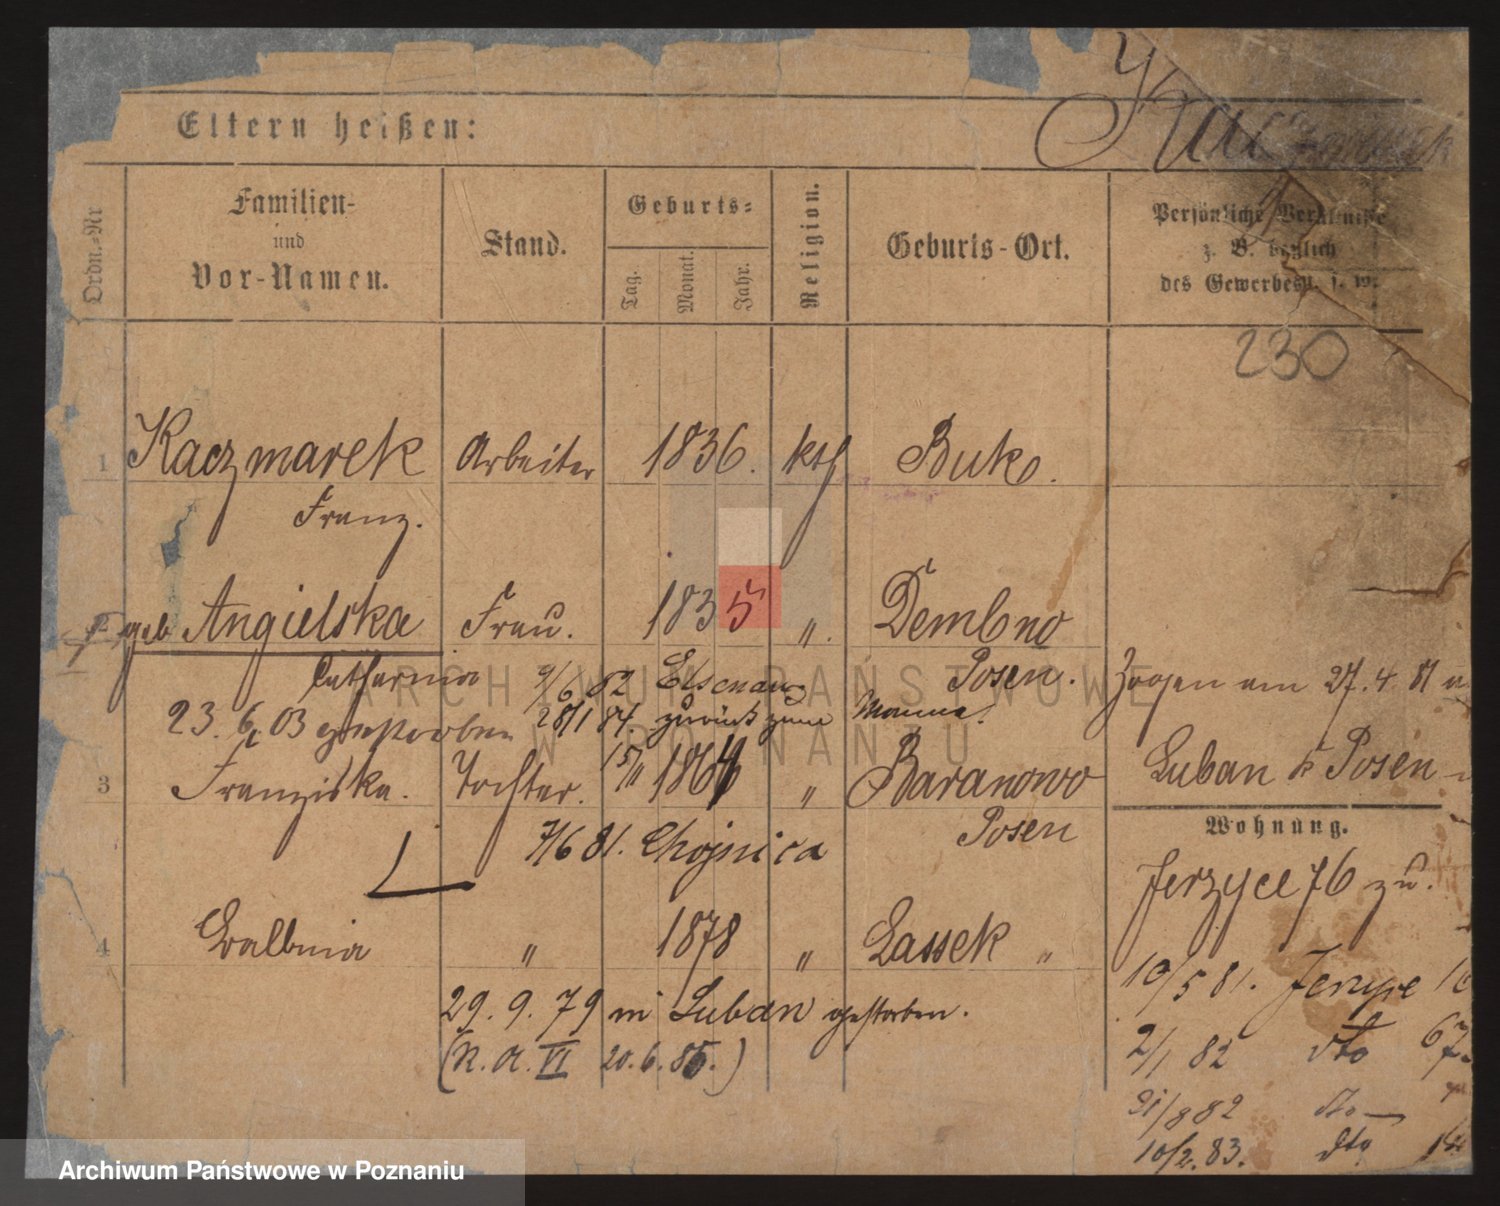 Eltern heißen:
Kaczmarek
Ordn.-Nr
Familien-
und
Vor-Namen.
Stand.
Geburts-
Tag.
Monat.
Jahr.
Religion.
Geburts-Ort.
Persönliche Verhältnisse
z. B. bezglich
des Gewerbes u. s. w.
230
1 Kaczmarek Arbeiter 1836. kth Buk.
Franz.
geb Angielska Frau. 1835 ". Dembno
Catharina 9/6 82 Elsenau Posen. Zogen am 27.4.81
23. 6. 03 gestorben 28/1 84. zurück zum Manne.
3 Franziska. Tochter. 15/11 1864 " Baranowo Luban Posen
7/6 81. Chojnica Posen
Wohnung.
Jerzyce 76 zu.
4 " 1878 " Lassek "
10/5 81. Jerzyce
29. 9. 79 in Luban gestorben.
2/1 82 dto 67
(N. A. VI 20. 6. 85.)
21/8 82 dto
10/2. 83. dto
ARCHIWUM PAŃSTWOWE
W POZNANIU
Archiwum Państwowe w Poznaniu